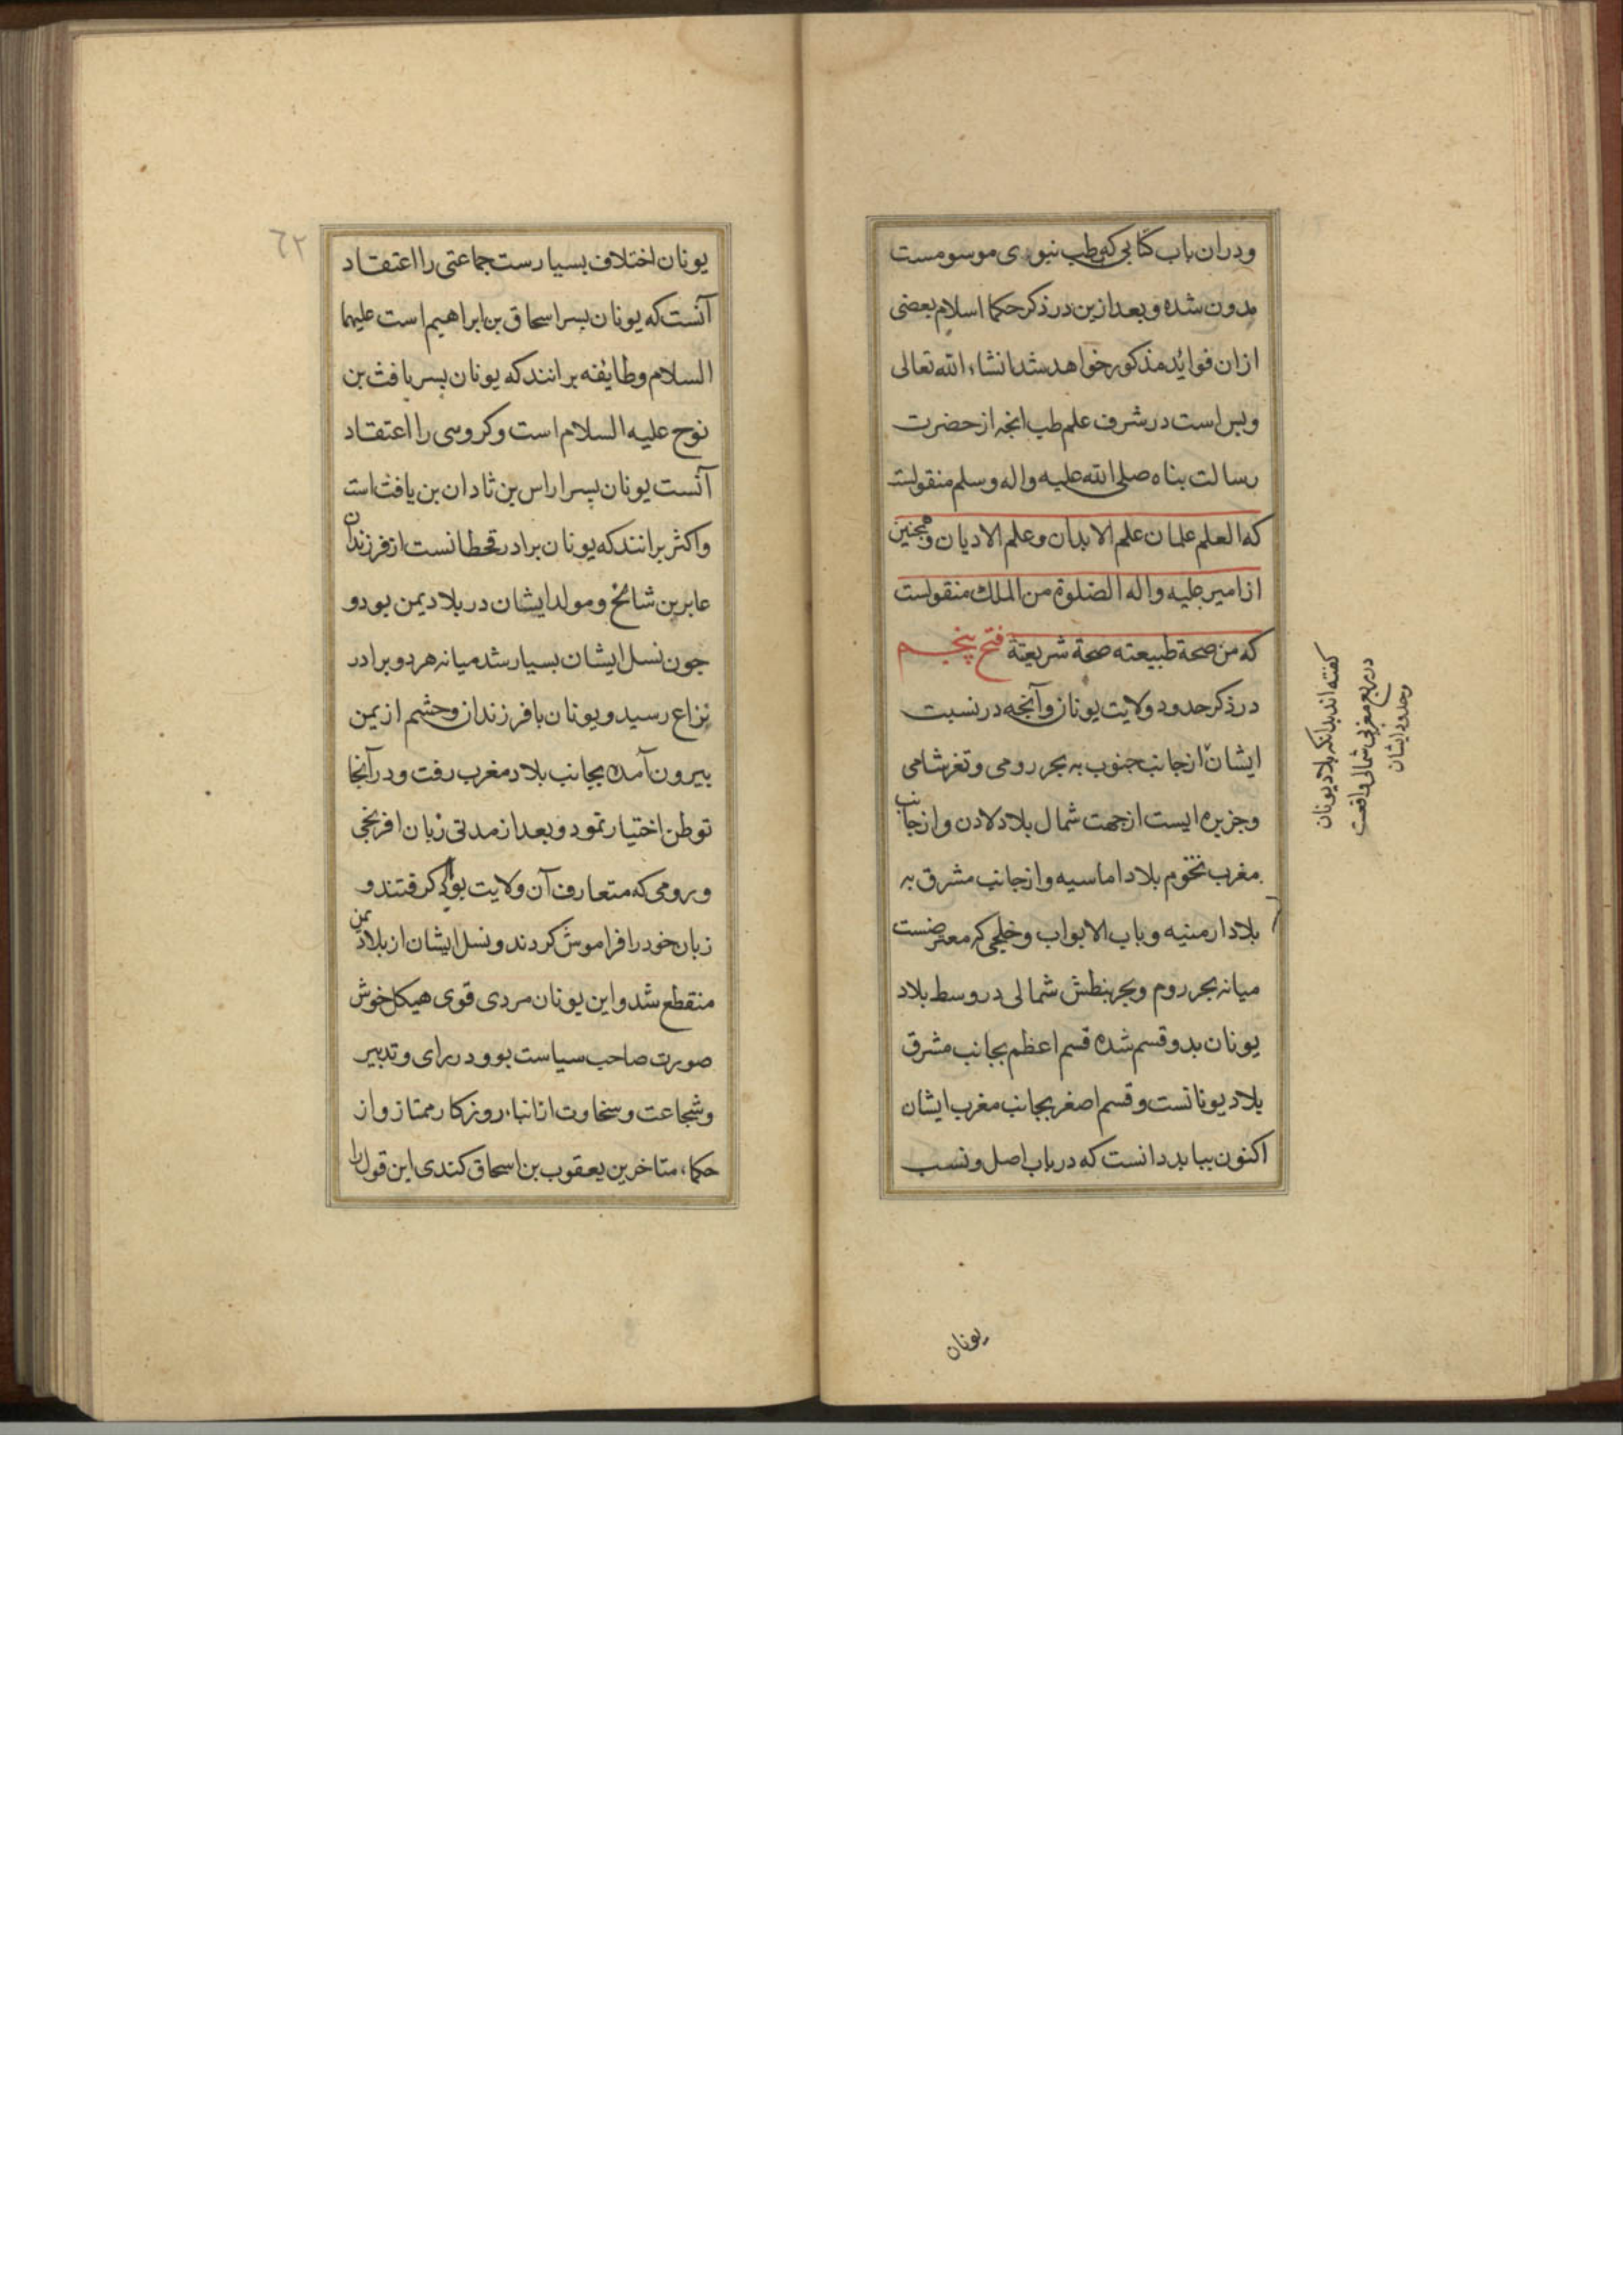 ودران باب کتابی که بطب نبوی موسومست
مدون شده و بعد ازین در ذکر حکما اسلام بعضی
ازان فواید مذکور خواهد شد انشاء الله تعالی
و بس است در شرف علم طب انجه از حضرت
رسالت بناه صلی الله علیه واله وسلم منقولست
که العلم علمان علم الابدان وعلم الادیان و همجنین
از امیر علیه واله الصلوة من الملک منقولست
که من صحة طبیعته صحة شریعتة فتح پنجم
در ذکر حدود ولایت یونان و آنجه در نسبت
ایشان از جانب جنوب به بحر رومی و ثغر شامی
و جزیره ایست از جهت شمال بلاد لادن و از جانب
مغرب تخوم بلاد اماسیه و از جانب مشرق به
بلاد ارمنیه و باب الابواب و خلیجی که معترضست
میانه بحر روم و بحر بنطش شمالی در وسط بلاد
یونان بدو قسم شده قسم اعظم بجانب مشرق
بلاد یونانست و قسم اصغر بجانب مغرب ایشان
اکنون بباید دانست که در باب اصل و نسب
کفته اند بدانکه بلاد یونان
در ربع مغربی شمالی واقعست
وحدود ایشان
یونان
٦٢
یونان اختلاف بسیارست جماعتی را اعتقاد
آنست که یونان بسر اسحاق بن ابراهیم است علیهما
السلام و طایفه برانند که یونان بسر یافث بن
نوح علیه السلام است و کروهی را اعتقاد
آنست یونان پسر اراس بن ثادان بن یافث است
و اکثر برانند که یونان برادر قحطانست از فرزندان
عابر بن شالخ و مولد ایشان در بلاد یمن بود و
جون نسل ایشان بسیار شد میانه هر دو برادر
نزاع رسید و یونان با فرزندان وحشم از یمن
بیرون آمده بجانب بلاد مغرب رفت و در آنجا
توطن اختیار نمود و بعد از مدتی زبان افرنجی
و رومی که متعارف آن ولایت بود کرفتند و
زبان خود را فراموش کردند و نسل ایشان از بلاد یمن
منقطع شد و این یونان مردی قوی هیکل خوش
صورت صاحب سیاست بود و در رای و تدبیر
و شجاعت و سخاوت از ابناء روزکار ممتاز و از
حکماء متاخرین یعقوب بن اسحاق کندی این قول را